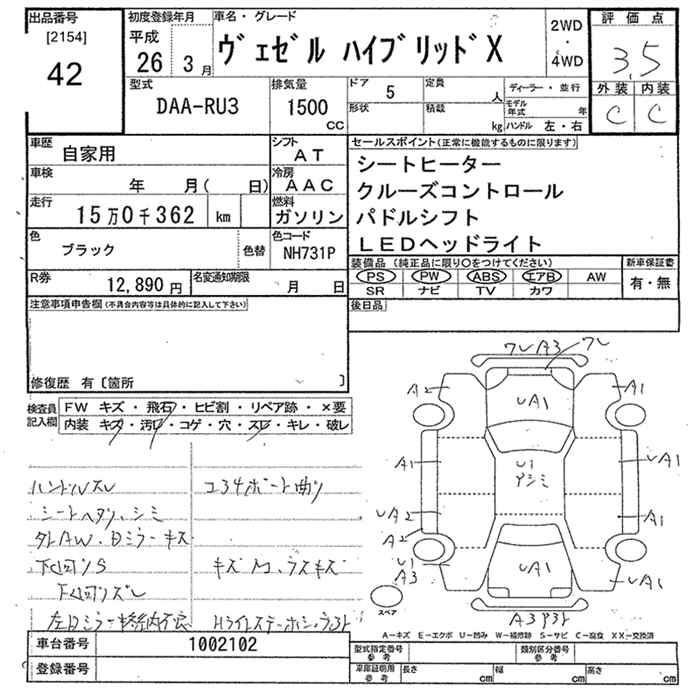 出品番号
[2154]
42
初度登録年月
平成
26 3月
車名・グレード
ヴェゼル ハイブリッドX
2WD
・
4WD
評価点
3.5
外装 内装
C C
型式
DAA-RU3
排気量
1500
CC
ドア 5
形状
定員 人
積載 kg
ディーラー・並行
モデル年式 年
ハンドル 左・右
車歴
自家用
シフト
AT
車検
年 月( 日)
冷房
AAC
走行
15万0千362 km
燃料
ガソリン
色
ブラック
色替
色コード
NH731P
R券
12,890円
名変通知期限
月 日
セールスポイント(正常に機能するものに限ります)
シートヒーター
クルーズコントロール
パドルシフト
LEDヘッドライト
装備品(純正品に限り○をつけてください)
PS PW ABS エアB AW
SR ナビ TV カワ
新車保証書
有・無
後日品
注意事項申告欄(不具合内容等は具体的に記入して下さい)
修復歴 有〔箇所 〕
検査員
記入欄
FW キズ・飛石・ヒビ割・リペア跡・×要
内装 キズ・汚レ・コゲ・穴・スレ・キレ・破レ
ハンドルスレ
コ34ボート曲り
シートヘタリ、シミ
外AW、Dミラーキズ
下回りS
キズM、ラスキズ
下回りズレ
ワレ A3 ワレ
A2
UA1
A1
A1
U1
アシミ
UA1
UA2
A2
A1
U1
A3
UA1
UA1
スペア
A-キズ E-エクボ U-凹み W-補修跡 S-サビ C-腐食 XX-交換済
車台番号
1002102
登録番号
型式指定番号
参考
類別区分番号
参考
車庫証明用
参考
長さ cm
幅 cm
高さ cm